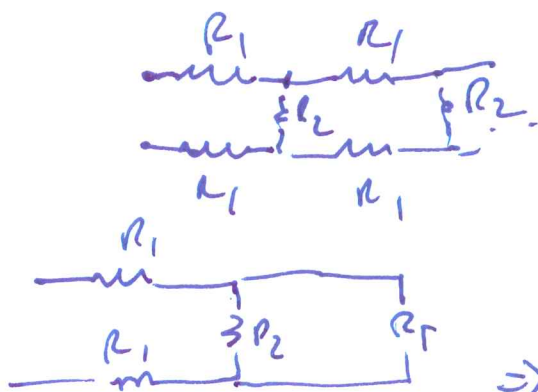 R1 R1
R2 R2
R1 R1
R1
R2 RT
R1 ⇒